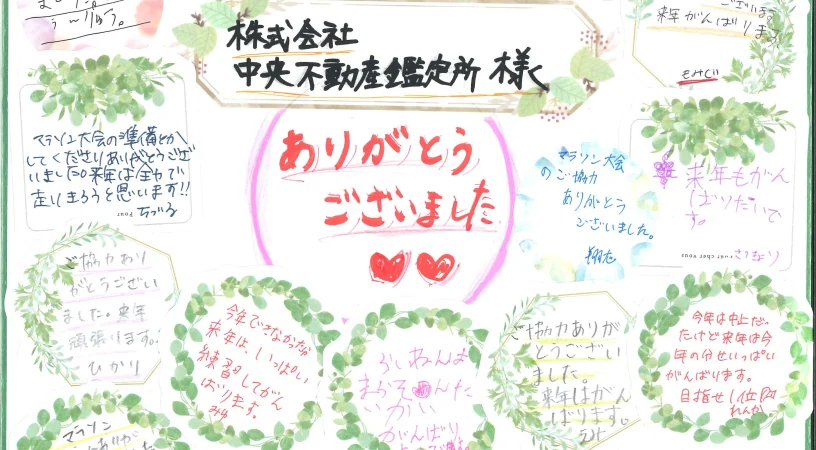 う〜りゅう。
来年がんばります。
もみじ
株式会社
中央不動産鑑定所 様
ありがとう
ございました
マラソン大会の準備とか
してくださりありがとうござ
いました。来年は全力で
走りきろうと思います!!
ちづる
マラソン大会
のご協力
ありがとう
ございました。
翔太
来年もがん
ばりたいで
す。
ご協力あり
がとうござい
ました。来年
頑張ります。
ひかり
今年できなかった分
来年は、いっぱい
練習してがん
ばります。
みゆ
らいねんは
がんばり
ご協力ありが
とうござい
ました。
来年はがん
ばります。
今年は中止だっ
たけど来年は今
年の分せいっぱい
がんばります。
目指せ1位
れんか
マラソン